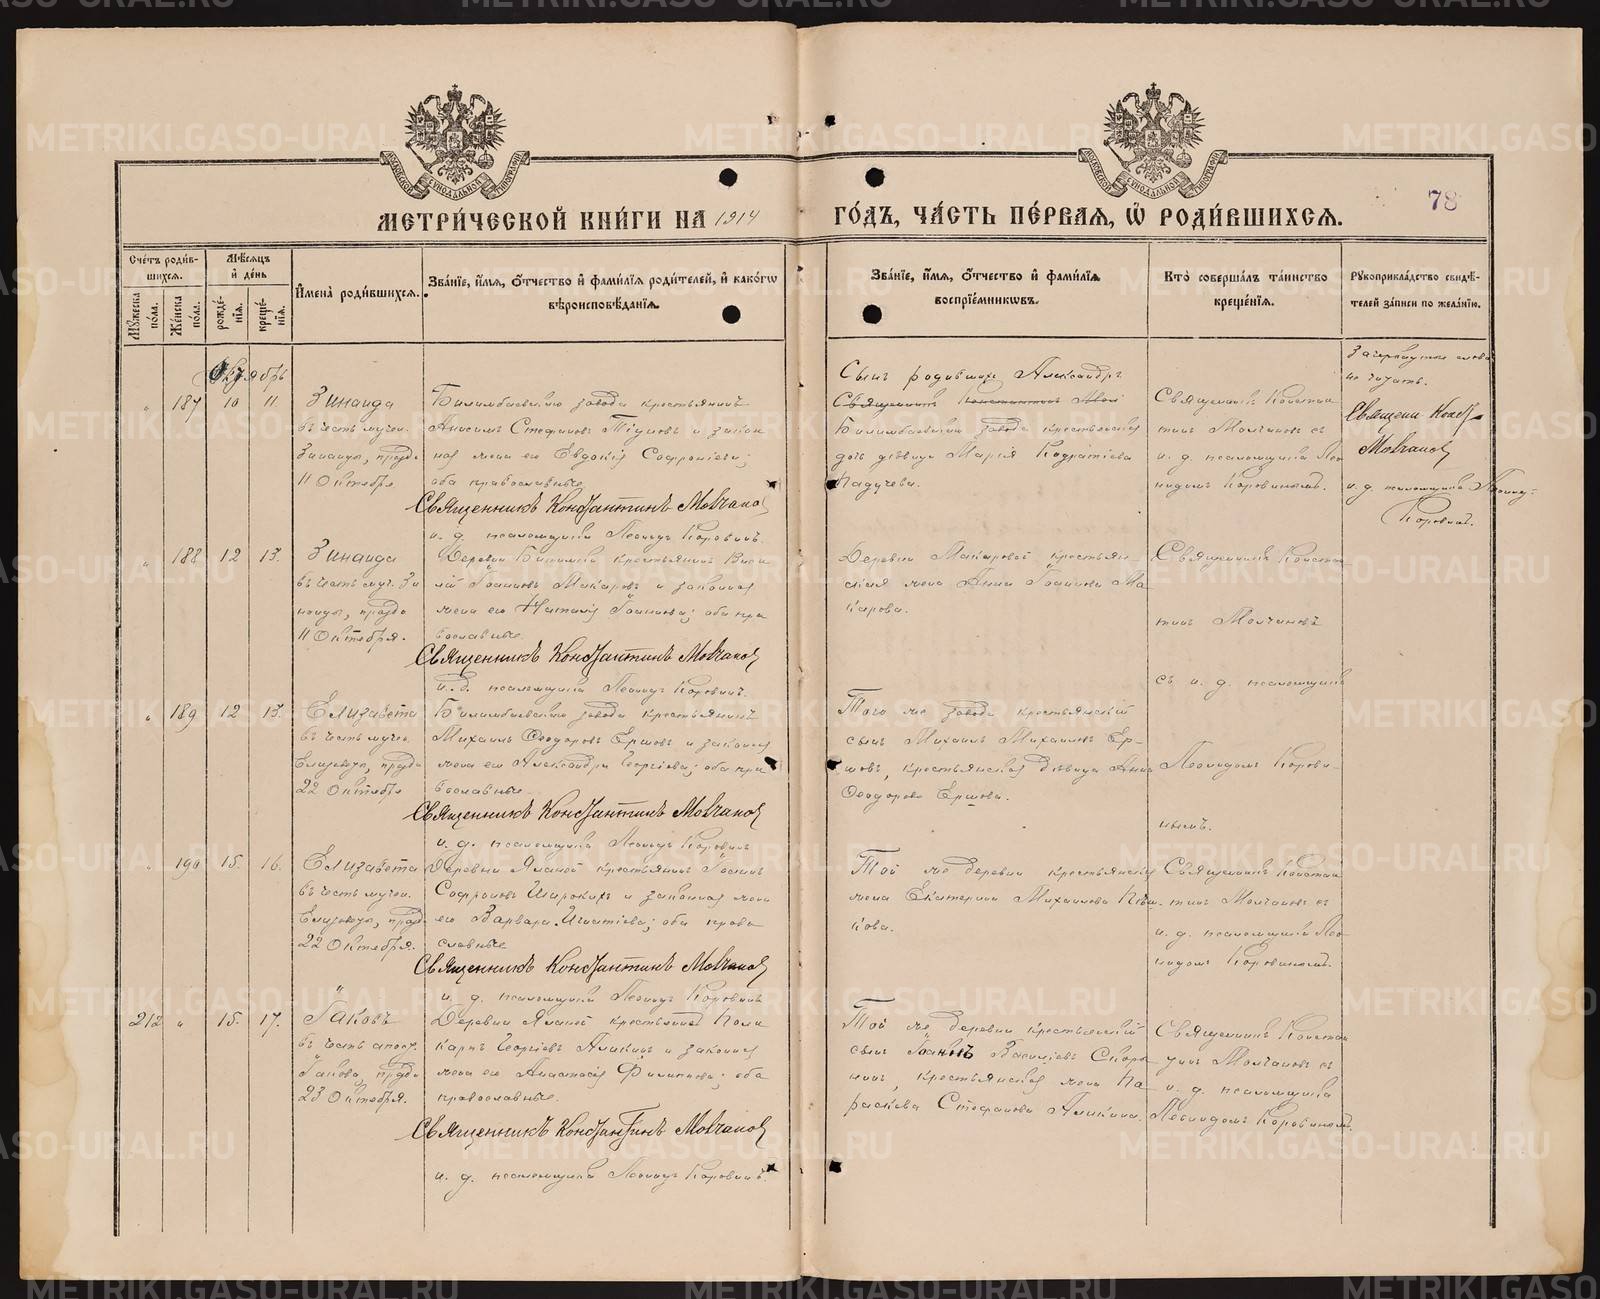 МЕТРИ́ЧЕСКОЙ КНИ́ГИ НА 1914
ГО́ДЪ, ЧА́СТЬ ПЕ́РВАЯ, Ѡ҆ РОДИ́ВШИХСЯ.
78
Сче́тъ роди́в-
шихся.
Мѣ́сяцъ
и҆ де́нь
Мꙋ́жеска
по́ла.
Же́нска
по́ла.
рожде́-
нія.
креще́-
нія.
И҆мена̀ роди́вшихся.
Зва́ніе, и҆́мя, ѻ҆́тчество и҆ фами́лія роди́телей, и҆ како́гѡ
вѣроисповѣ́данія.
Зва́ніе, и҆́мя, ѻ҆́тчество и҆ фами́лія
воспріе́мникѡвъ.
Кто̀ соверша́лъ та́инство
креще́нія.
Рꙋкоприкла́дство свидѣ́-
телей за́писи по жела́нію.
Октябрь
187 10 11.
Зинаида
въ честь мучен.
Зинаиды, празд.
11 Октября
Билимбаевскаго завода крестьянинъ
Анисимъ Стефановъ и закон
ная жена его Евдокія Софроніева;
оба православные.
Священникъ Константинъ Молчановъ
и. д. псаломщика Леонидъ Коровинъ.
Сынъ родившихъ Александръ
Священникъ Константинъ Мол
Билимбаевскаго завода крестьянская
дочь дѣвица Марія Кодратіева
Падучева.
Священникъ Констан
тинъ Молчановъ съ
и. д. псаломщика Лео
нидомъ Коровинымъ.
Зачеркнутые слова
не читать.
Священ. Конст.
Молчановъ
и. д. псаломщика Леонидъ
Коровинъ.
188 12 13.
Зинаида
въ честь муч. Зи
наиды, празд.
11 Октября.
Деревни крестьянинъ Васи
лій Іоанновъ Макаровъ и законная
жена его Наталія Іоаннова; оба пра
вославные.
Священникъ Константинъ Молчановъ
и. д. псаломщика Леонидъ Коровинъ.
Деревни Макаровой крестьян
ская жена Анна Іоаннова Ма
карова.
Священникъ Констан
тинъ Молчановъ
съ и. д. псаломщика
189 12 13.
Елизавета
въ честь мучен.
Елизаветы, празд.
22 Октября
Билимбаевскаго завода крестьянинъ
Михаилъ Ѳеодоровъ Ершовъ и законная
жена его Александра Георгіева; оба пра
вославные.
Священникъ Константинъ Молчановъ
и. д. псаломщика Леонидъ Коровинъ
Того же завода крестьянскій
сынъ Михаилъ Михаиловъ Ер-
шовъ, крестьянская дѣвица Анна
Ѳеодорова Ершова.
Леонидомъ Корови-
нымъ.
190 15. 16.
Елизавета
въ честь мучен.
Елизаветы, празд.
22 Октября.
Деревни Яланой крестьянинъ Іоаннъ
Софроновъ Широкихъ и законная жена
его Варвара Игнатіева; оба право
славные
Священникъ Константинъ Молчановъ
и. д. псаломщика Леонидъ Коровинъ
Той же деревни крестьянская
жена Екатерина Михаилова
кова.
Священникъ Констан
тинъ Молчановъ съ
и. д. псаломщика Лео
нидомъ Коровинымъ.
212 15. 17.
Іаковъ
въ честь апост.
Іакова, празд.
23 Октября.
Деревни Яланой крестьянинъ Поли
карпъ Георгіевъ Аликинъ и законная
жена его Анастасія Филиппова; оба
православные.
Священникъ Константинъ Молчановъ
и. д. псаломщика Леонидъ Коровинъ.
Той же деревни крестьянскій
сынъ Іоаннъ Василіевъ
крестьянская жена Па
раскева Стефанова Аликина.
Священникъ Констан
тинъ Молчановъ съ
и. д. псаломщика
Леонидомъ Коровинымъ.